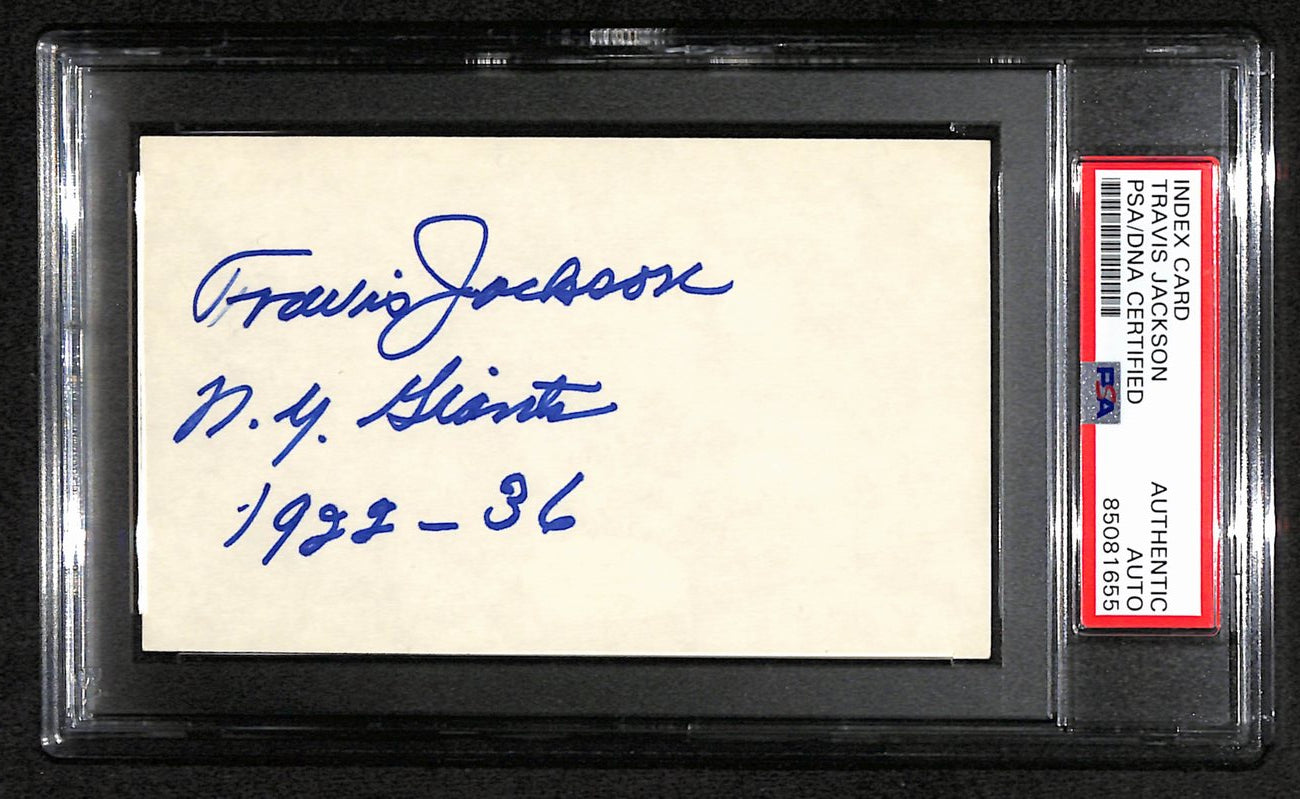 Travis Jackson
N.Y. Giants
1922 - 36
INDEX CARD
TRAVIS JACKSON
PSA/DNA CERTIFIED
PSA
AUTHENTIC
AUTO
85081655